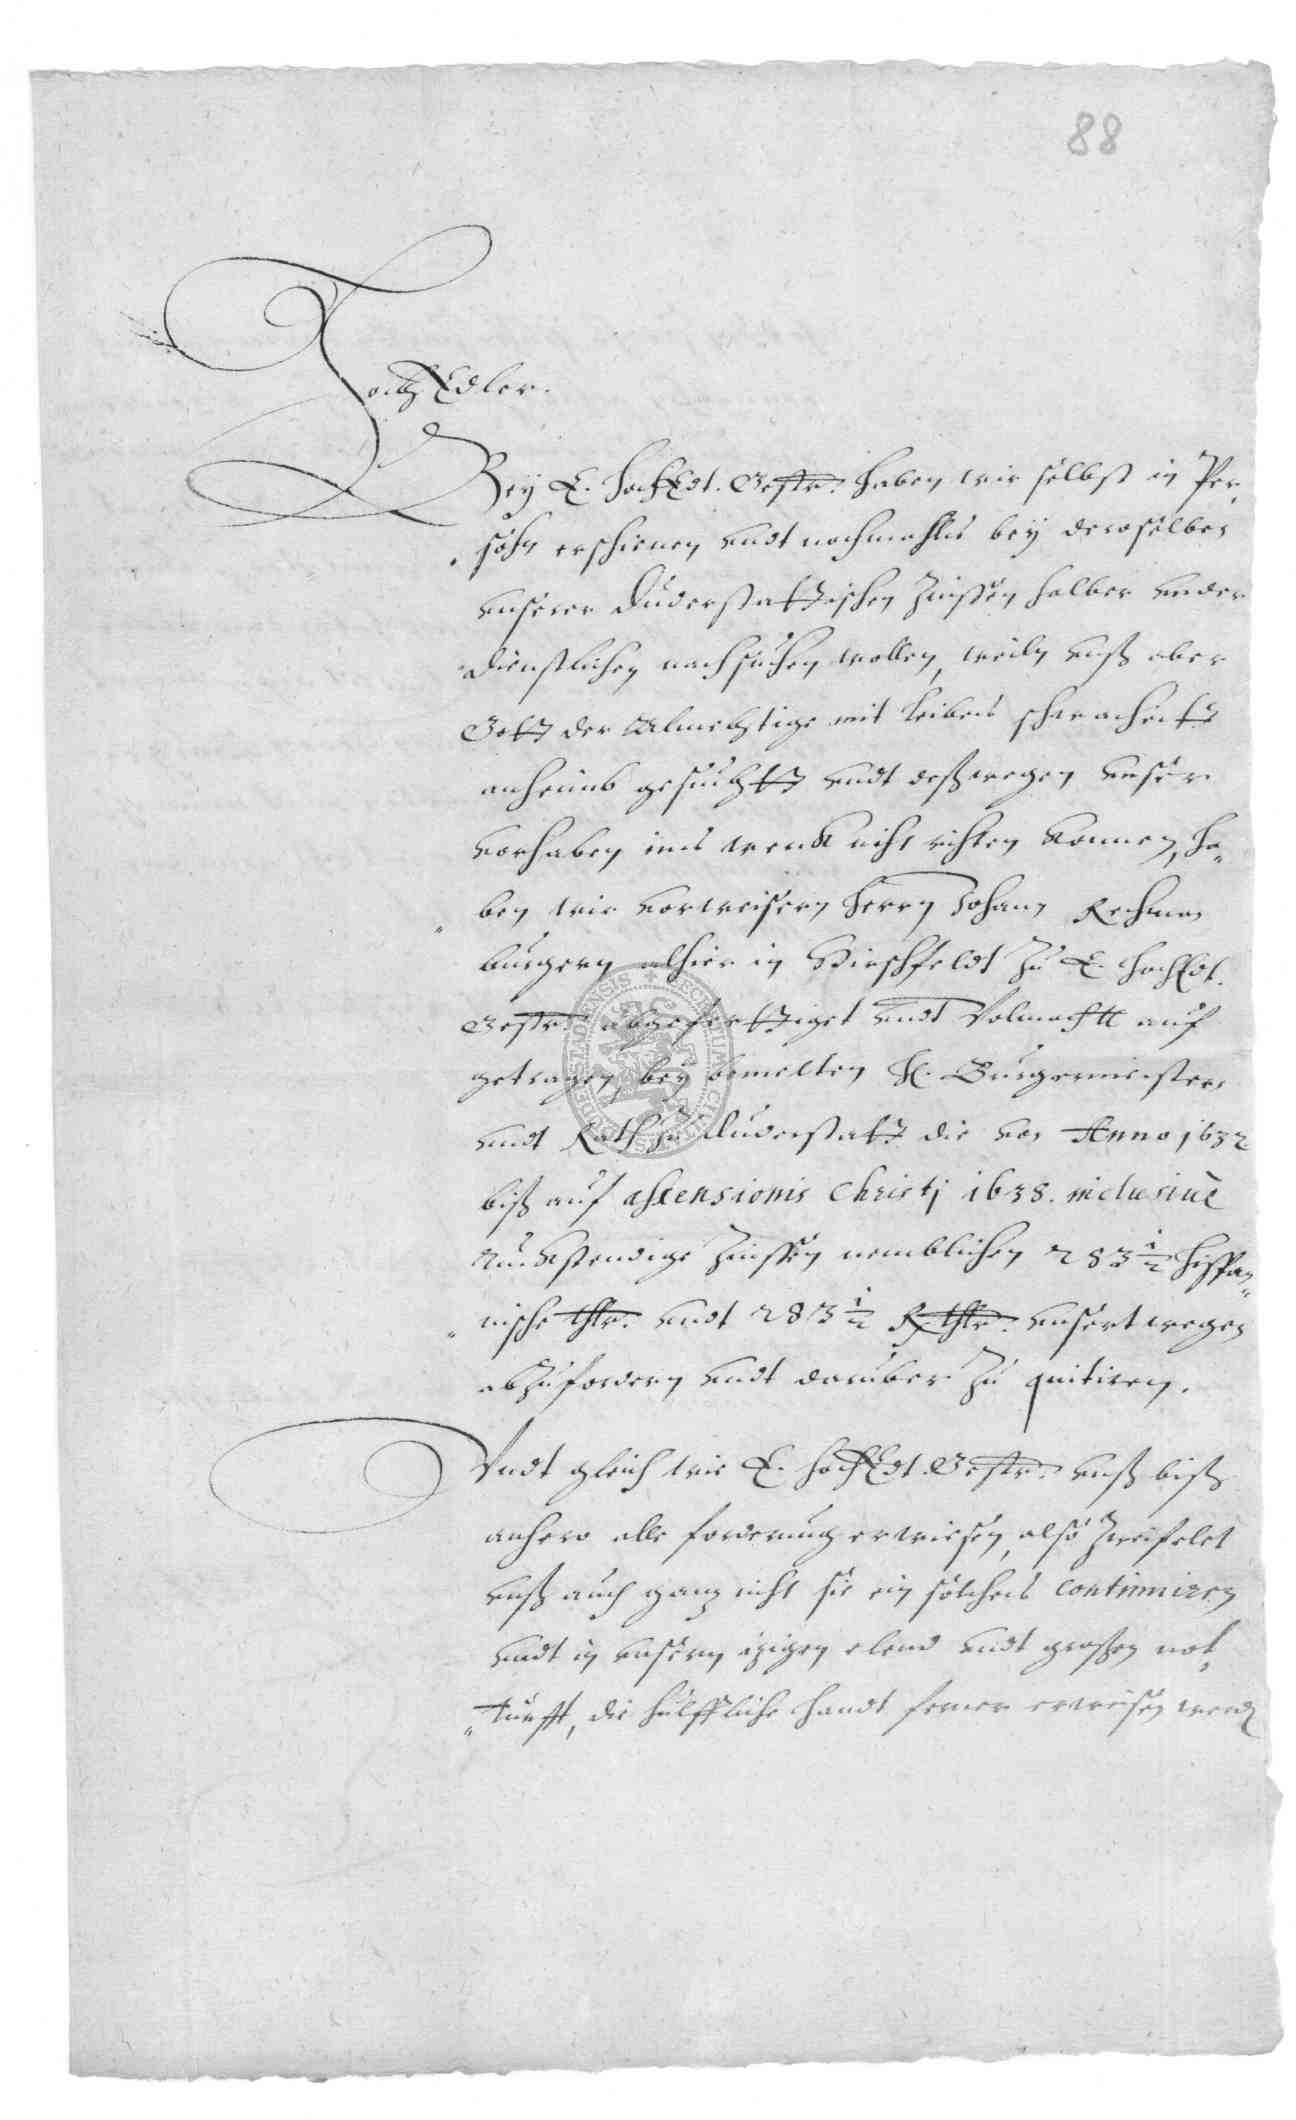 88
HochEdler.
Bey E. HochEdt. Gestr: haben wir selbst in Per,
sohn erscheinen undt nochmahls bey deroselben
unserer Duderstattischen Zinssen halber under
dienstlichen nachsuchen wollen, weiln unß aber
Gott der Almechtige mit leibes schwacheitt
anheimb gesuchtt undt deßwegen unser
vorhaben ins werck nicht richten konnen, Ha„
„ben wir vorweisern Herrn Johann Rechman
burgern alhier in Hirschfeldt zu E. HochEdt.
Gestr: abgefertiget undt Volmacht auf
getragen, bey bemelten H. Burgermeister
undt Rath zu Duderstatt die von Anno 1632
biß auf ascensionis Christj 1638. inclusiue
Ruckstendige Zinssen nemblichen 283 1/2 Hispan„
„nische thlr: undt 283 1/2 R.thlr: unsertwegen
abzufordern undt daruber zu quitiren.
Undt gleich wie E. HochEdt. Gestr: unß biß
anhero alle forderung erwiesen, also zweifelet
unß auch ganz nicht sie ein solches continuiren
undt in unsern izigen elend undt großen not„
„turfft, die hulffliche handt ferner erweisen werden
SECRETUM CIVITATIS DUDERSTADIENSIS